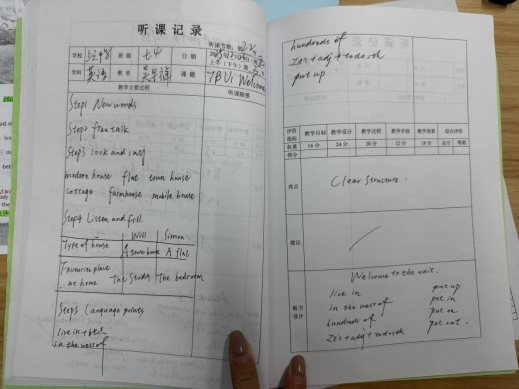 听课记录
学校
班级 七
日期
上午(下午)第
学科 英语 教者
课题 7BU1 Welcome
教学主要过程
听课随感
Step1 New words
Step2 free talk
Step3 look and say
modern house flat town house
cottage farmhouse mobile house
Step4 Listen and fill
Will Simon
Type of house A town house A flat
Favourite place
at home The study The bedroom
Step5 Language points
live in
in the west of
hundreds of
It's + adj + to do sth
put up
评价指标 教学目标 教学设计 教学过程 教学手段 教学效果 综合评价
权重 16分 24分 30分 12分 18分 总分 等第
得分
亮点
Clear structure.
建议
板书设计
Welcome to the unit.
live in put up
in the west of put in
hundreds of put on
It's + adj + to do sth put out.